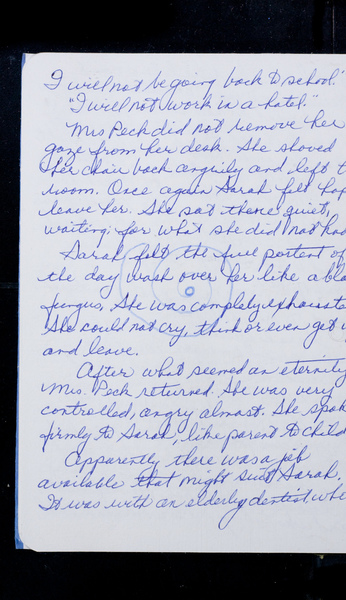 I will not be going back to school."
"I will not work in a hotel."
Mrs Peck did not remove her
gaze from her desk. She shoved
her chair back angrily and left t
room. Once again Sarah felt hop
leave her. She sat there quiet,
waiting for what she did not kno
Sarah felt the full portent of
the day wash over her like a bla
fungus. She was completely exhauste
She could not cry, think or even get u
and leave.
After what seemed an eternity
Mrs. Peck returned. She was very
controlled, angry almost. She spok
firmly to Sarah, like parent to child
Apparently there was a job
available that might suit Sarah.
It was with an elderly dentist whi